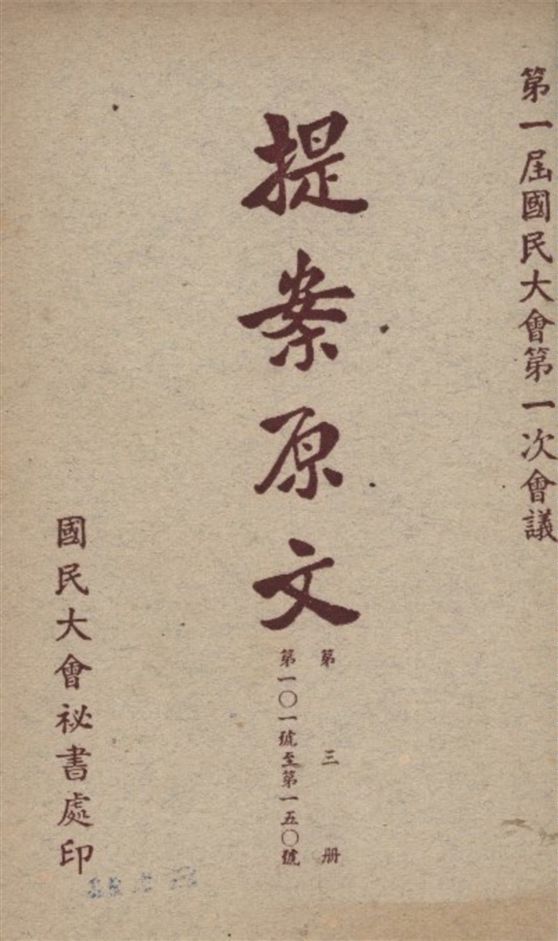 第一屆國民大會第一次會議
提案原文
第三册
第一〇一號至第一五〇號
國民大會祕書處印